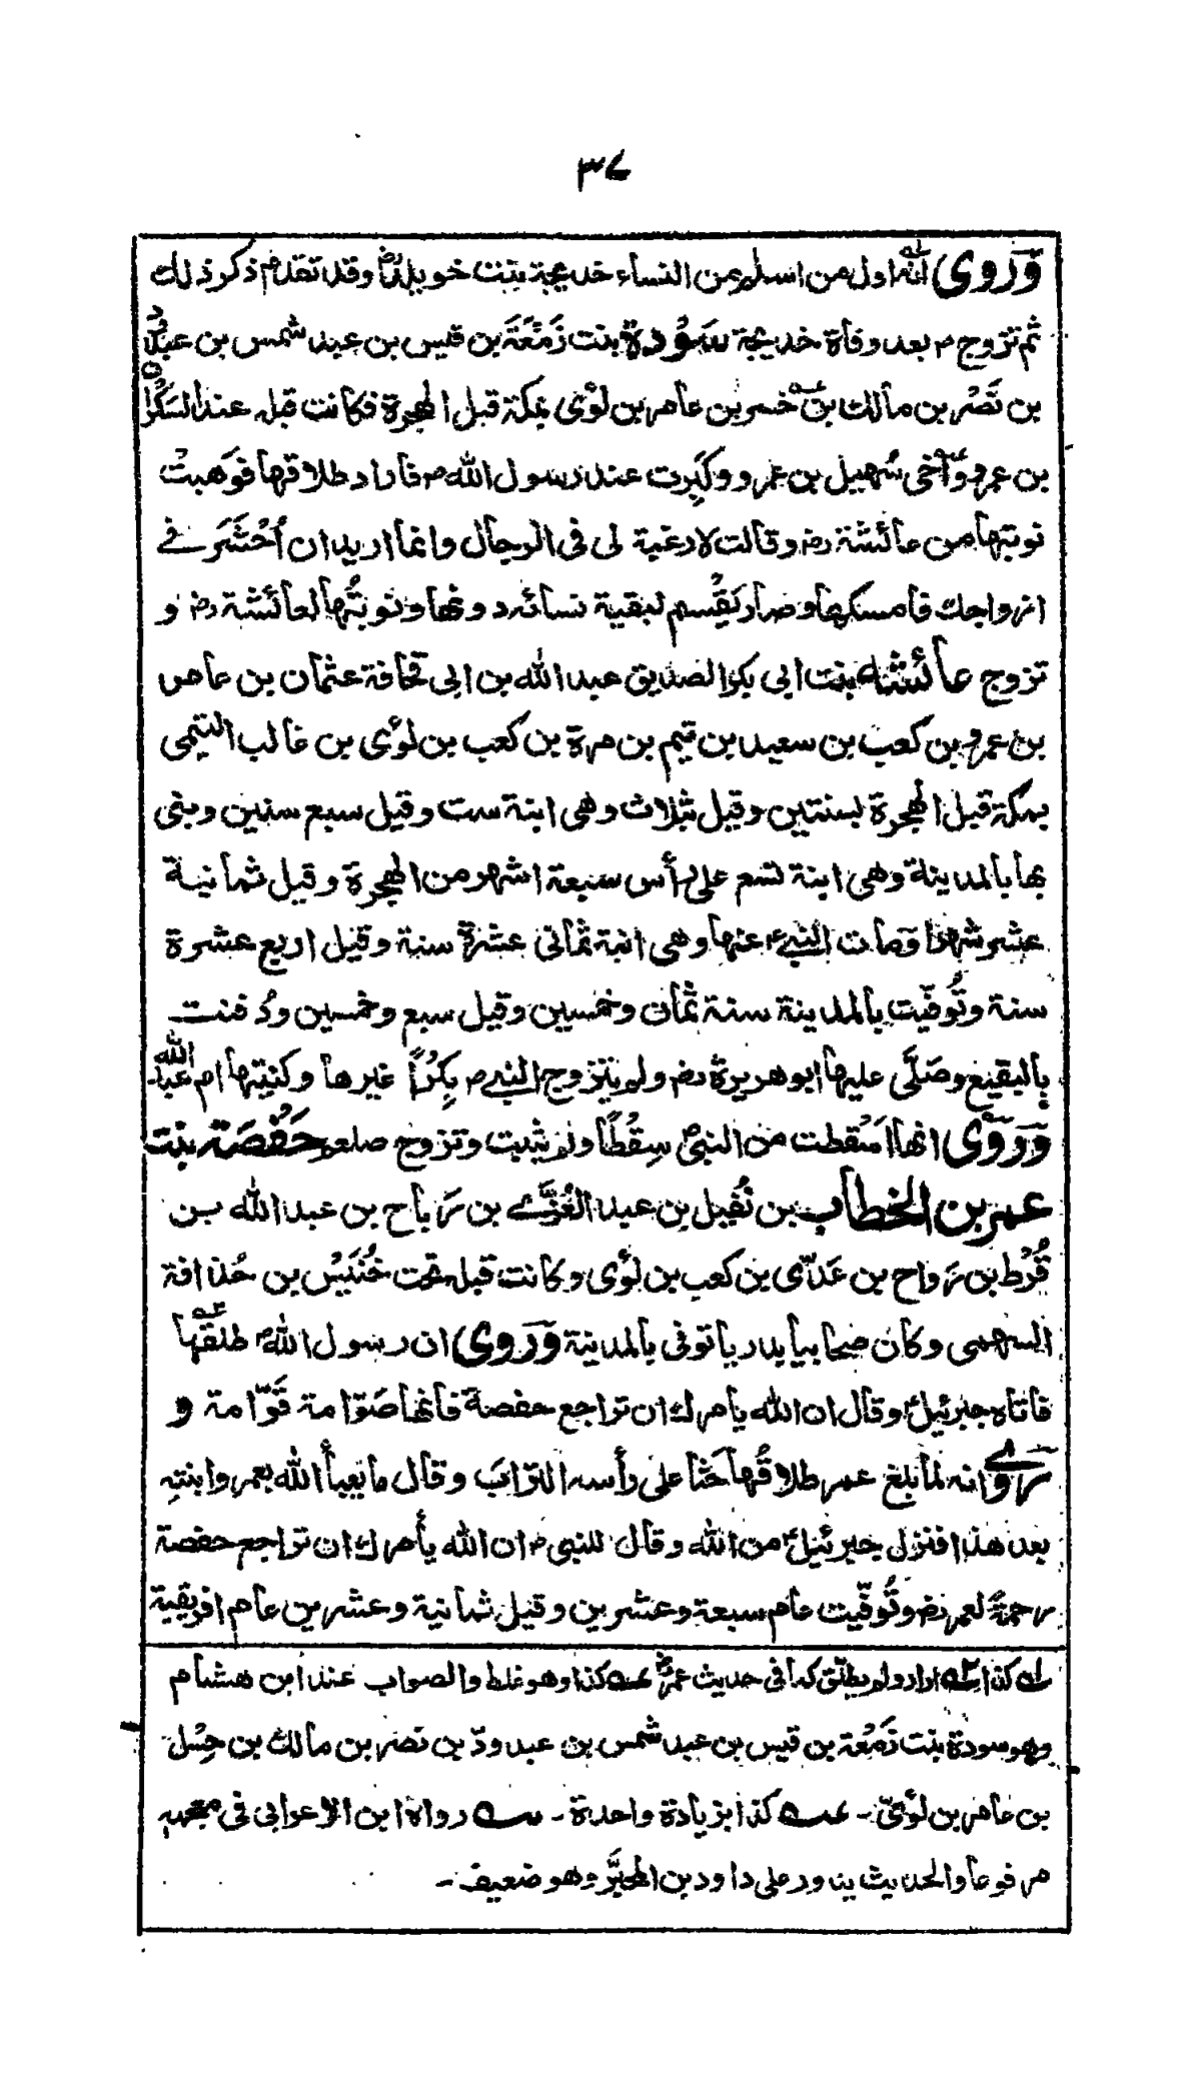 ٣٧
وَرُوِیَ انه اول من اسلم من النساء خديجة بنت خويلد رض وقد تقدم ذكر ذلك
ثم تزوج م بعد وفاة خديجة سَوْدة بنت زَمْعَةَ بن قيس بن عبد شمس بن عبد وُدّ
بن نَصْر بن مالك بن خسر بن عامر بن لوٴى بمكة قبل الهجرة فكانت قبله عند السَكْران
بن عمرو اخى سُهيل بن عمرو وكَبِرت عند رسول الله م فاراد طلاقها فوَهبتْ
نوبتها من عائشة رض وقالت لا رغبة لى فى الرجال وانما اريد ان اُحْشَرَ فے
ازواجك فامسكها وصار يَقْسِم لبقية نسائه دونها ونوبتُها لعائشة رض و
تزوج عائشة بنت ابى بكر الصديق عبد الله بن ابى قحافة عثمان بن عامر
بن عمرو بن كعب بن سعيد بن تيم بن مرة بن كعب بن لوٴى بن غالب التيمى
بمكة قبل الهجرة بسنتين وقيل بثلاث وهى ابنة ست وقيل سبع سنين وبنى
بها بالمدينة وهى ابنة تسع على رأس سبعة اشهر من الهجرة وقيل ثمانية
عشر شهرا ومات النبى م عنها وهى ابنة ثمانى عشرة سنة وقيل اربع عشرة
سنة وتُوفّيت بالمدينة سنة ثمان وخمسين وقيل سبع وخمسين ودُفنت
بالبقيع وصَلَّى عليها ابو هريرة رض ولم يتزوج النبى م بِكْرًا غيرها وكنيتها ام عبد الله
وَرُوِىَ انها اَسْقطت من النبى م سِقْطًا ولم يثبت وتزوج صلعم حَفْصَة بنت
عمر بن الخطاب بن نُفيل بن عبد العُزّٰے بن رَباح بن عبد الله بن
قُرْط بن رَواح بن عَدّى بن كعب بن لوٴى وكانت قبله تحت خُنَيْس بن حُذافة
السهمى وكان صحابيا بدريا توفى بالمدينة وَرُوِى ان رسول الله م طلقها
فاتاه جبرئيل وقال ان الله يامرك ان تراجع حفصة فانها صَوّامة قَوّامة و
رُوِے انه لما بلغ عمر طلاقُها حَثا على رأسه التراب وقال ما يعبأ الله بعمر وابنتِهِ
بعد هذا فنزل جبرئيل من الله وقال للنبى م ان الله يأمرك ان تراجع حفصة
رحمةً لعمر رض وتُوفّيت عام سبعة وعشرين وقيل ثمانية وعشرين عام افريقية
له كذا عه اراد ولم يطلّق كما فى حديث عمر رض عه كذا وهو غلط والصواب عند ابن هشام
وهو سودة بنت زَمْعة بن قيس بن عبد شمس بن عبد ودّ بن نصر بن مالك بن حِسْل
بن عامر بن لوٴىّ - عه كذا بزيادة واحدة - سه رواه ابن الاعرابى فى معجمه
مرفوعا والحديث يدور على داود بن المحبَّر وهو ضعيف -